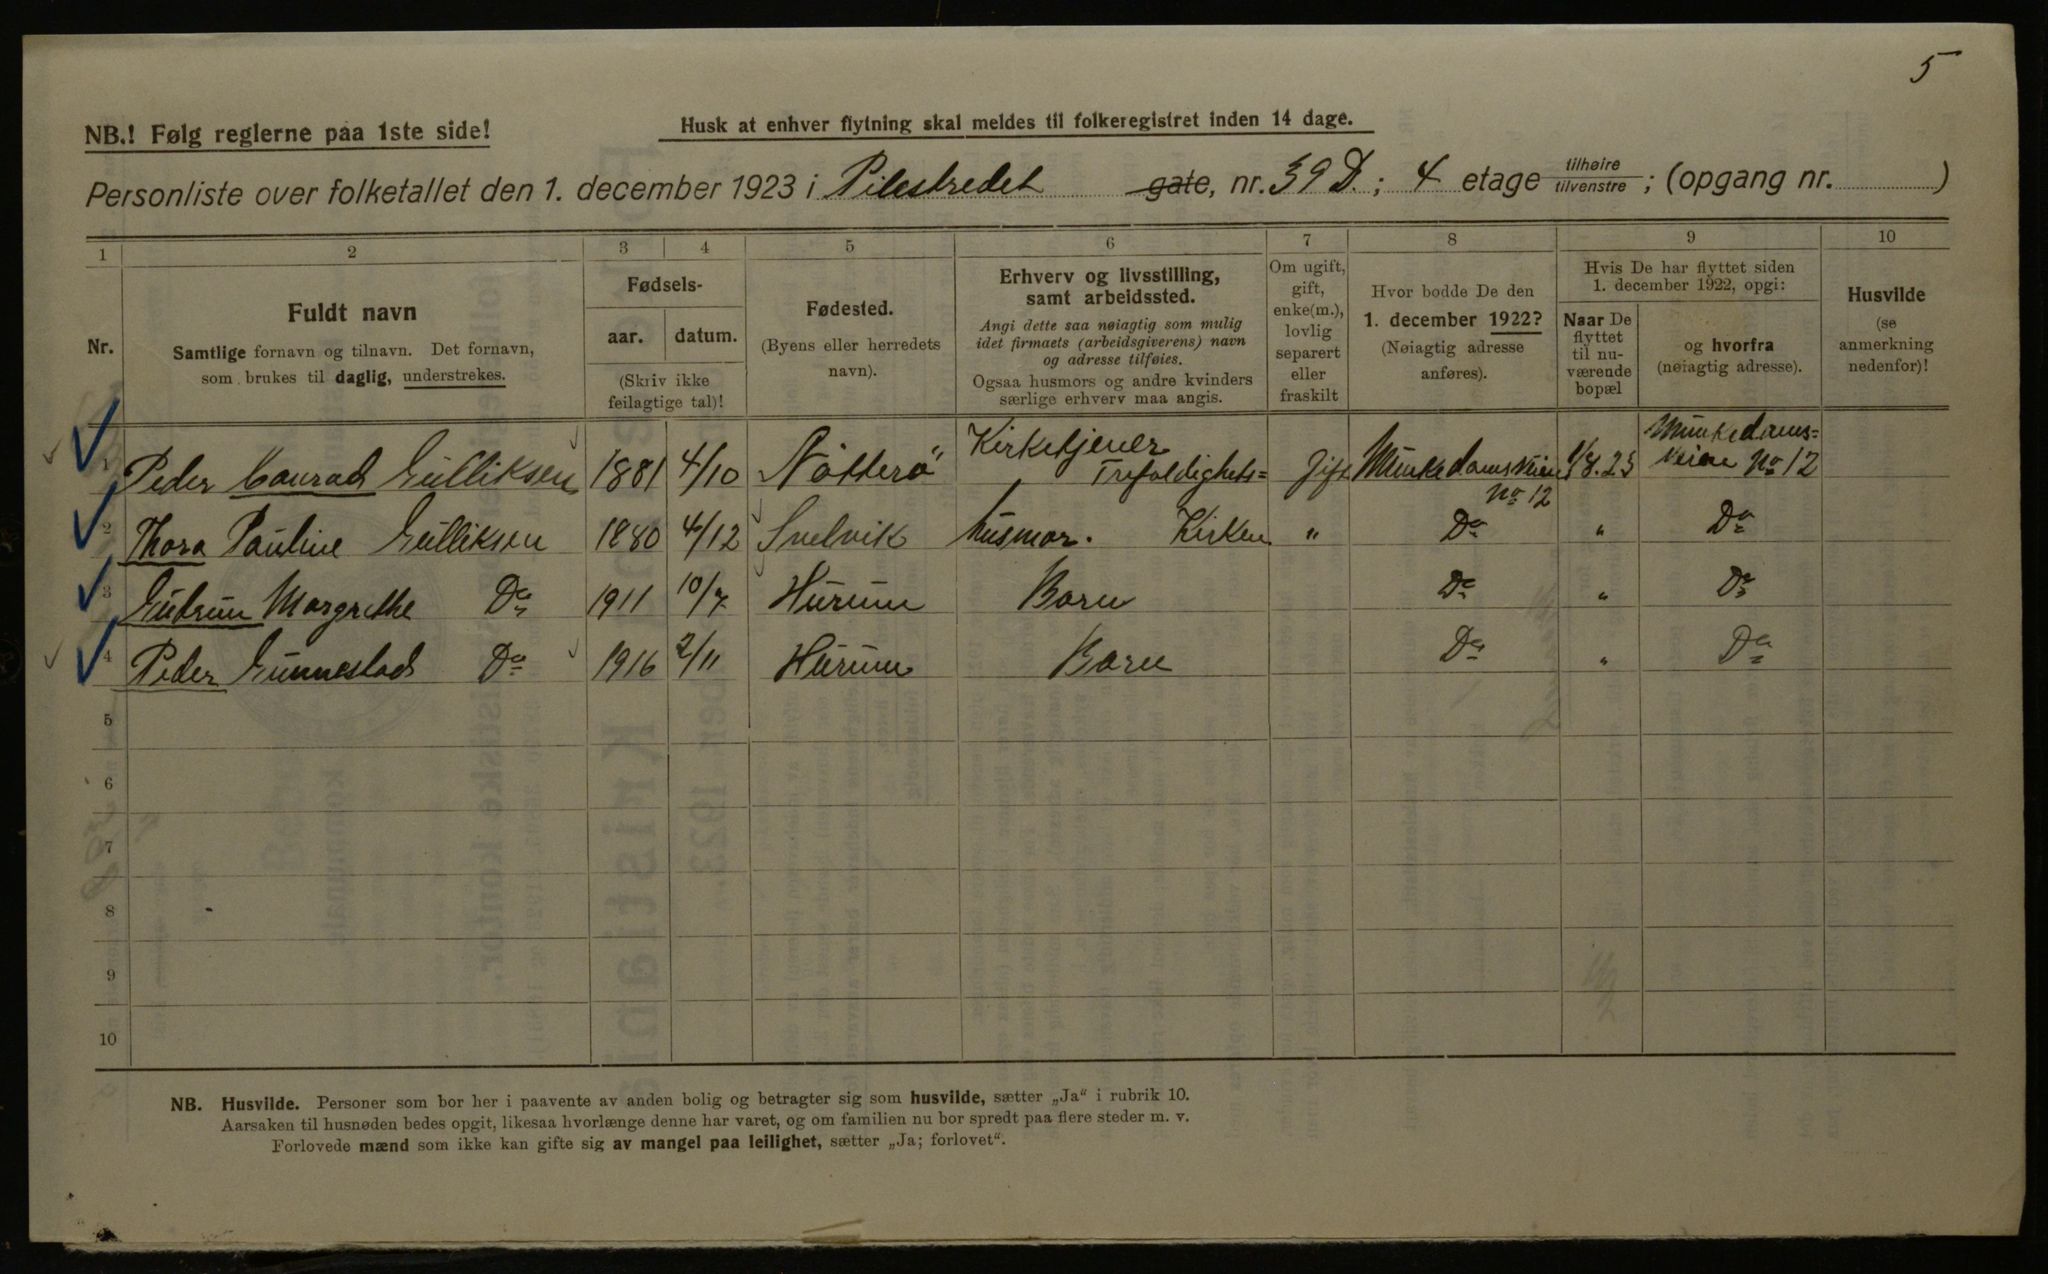 5
NB.! Følg reglerne paa 1ste side!
Husk at enhver flytning skal meldes til folkeregistret inden 14 dage.
Personliste over folketallet den 1. december 1923 i Pilestredet gate, nr. 39 D.; 4 etage tilhøire tilvenstre; (opgang nr. )
1 2 3 4 5 6 7 8 9 10
Nr.
Fuldt navn
Samtlige fornavn og tilnavn. Det fornavn,
som brukes til daglig, understrekes.
Fødsels-
aar. datum.
(Skriv ikke
feilagtige tal)!
Fødested.
(Byens eller herredets
navn).
Erhverv og livsstilling,
samt arbeidssted.
Angi dette saa nøiagtig som mulig
idet firmaets (arbeidsgiverens) navn
og adresse tilføies.
Ogsaa husmors og andre kvinders
særlige erhverv maa angis.
Om ugift,
gift,
enke(m.),
lovlig
separert
eller
fraskilt
Hvor bodde De den
1. december 1922?
(Nøiagtig adresse
anføres).
Hvis De har flyttet siden
1. december 1922, opgi:
Naar De
flyttet
til nu-
værende
bopæl
og hvorfra
(nøiagtig adresse).
Husvilde
(se
anmerkning
nedenfor)!
1 Peder Conrad Gulliksen 1881 4/10 Nötterö Kirketjener Trefoldighets= Gift Munkedamsveien No 12 1/8.23 Munkedams= veien No 12
2 Thora Pauline Gulliksen 1880 4/12 Svelvik husmor. Kirken " Do " Do
3 Gudrun Margrethe Do 1911 10/7 Hurum Barn Do " Do
4 Peder Gunnestad Do 1916 2/11 Hurum Barn Do " Do
5
6
7
8
9
10
NB. Husvilde. Personer som bor her i paavente av anden bolig og betragter sig som husvilde, sætter „Ja“ i rubrik 10.
Aarsaken til husnøden bedes opgit, likesaa hvorlænge denne har varet, og om familien nu bor spredt paa flere steder m. v.
Forlovede mænd som ikke kan gifte sig av mangel paa leilighet, sætter „Ja; forlovet“.